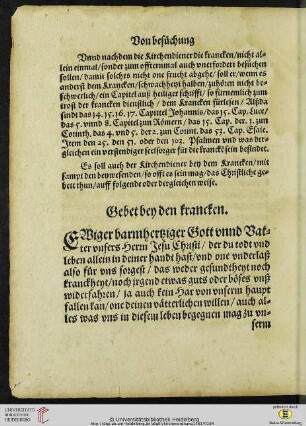 Von besůchung
Vnnd nachdem die Kirchendiener die krancken/nicht al-
lein einmal/sonder zum offtermal auch vnerfordert besůchen
sollen/damit solches nicht one frucht abgehe/soll er/wenn es
anderst dem Krancken/schwachheyt halben/zuhören nicht be-
schwerlich/ein Capitel auß heiliger schrifft/so fürnemlich zum
trost der krancken dienstlich/dem Krancken fürlesen/Alßda
sindt das 14. 15. 16. 17. Capittel Johannis/das 15. Cap. Luce/
das 5. vnnd 8. Capitel zum Römern/das 15. Cap. der 1. zum
Corinth. das 4. vnd 5. der 2. zum Corint. das 53. Cap. Esaie.
Item den 25. den 51. oder den 102. Psalmen vnd was der-
gleichen ein verstendiger seelsorger für die krancke sein befindet.
Es soll auch der Kirchendiener bey dem Krancken/mit
sampt den beywesenden/so offt es sein mag/das Christliche ge-
bett thun/auff folgende oder dergleichen weise.
Gebet bey den krancken.
EWiger barmhertziger Gott vnnd Vat-
ter vnsers Herrn Jesu Christi/der du todt vnd
leben allein in deiner handt hast/vnd one vnderlaß
also für vns sorgest/das weder gesundtheyt noch
kranckheyt/noch irgend etwas guts oder böses vnß
widerfahren/ja auch kein Har von vnserm haupt
fallen kan/one deinen vätterlichen willen/auch al-
les was vns in diesem leben begegnen mag zu vn-
serm
© Universitätsbibliothek Heidelberg